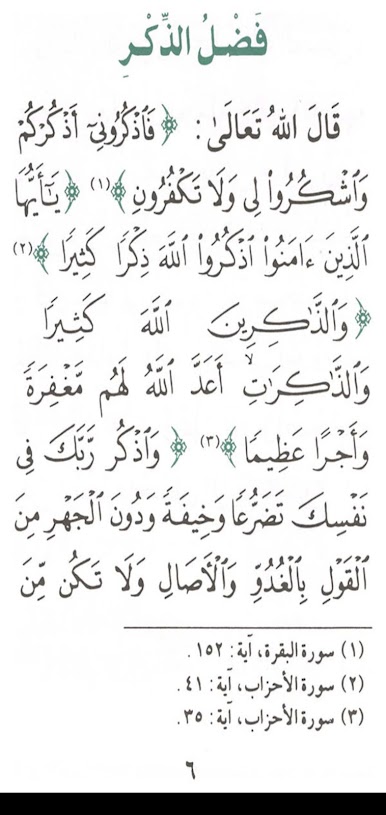 فَضْلُ الذِّكْرِ
قَالَ اللهُ تَعَالَىٰ: ﴿ فَٱذْكُرُونِىٓ أَذْكُرْكُمْ
وَٱشْكُرُوا۟ لِى وَلَا تَكْفُرُونِ ﴾(١) ﴿ يَـٰٓأَيُّهَا
ٱلَّذِينَ ءَامَنُوا۟ ٱذْكُرُوا۟ ٱللَّهَ ذِكْرًا كَثِيرًا ﴾(٢)
﴿ وَٱلذَّـٰكِرِينَ ٱللَّهَ كَثِيرًا
وَٱلذَّـٰكِرَٰتِۙ أَعَدَّ ٱللَّهُ لَهُم مَّغْفِرَةً
وَأَجْرًا عَظِيمًا ﴾(٣) ﴿ وَٱذْكُر رَّبَّكَ فِى
نَفْسِكَ تَضَرُّعًا وَخِيفَةً وَدُونَ ٱلْجَهْرِ مِنَ
ٱلْقَوْلِ بِٱلْغُدُوِّ وَٱلْأَصَالِ وَلَا تَكُن مِّنَ
(١) سورة البقرة، آية: ١٥٢.
(٢) سورة الأحزاب، آية: ٤١.
(٣) سورة الأحزاب، آية: ٣٥.
٦